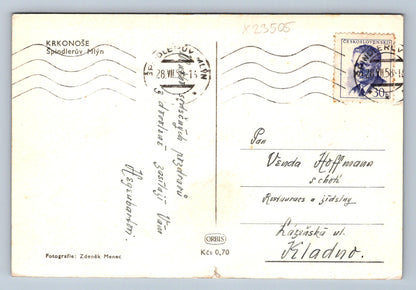 KRKONOŠE
Špindlerův Mlýn
x23505
ŠPINDLERŮV MLÝN
28.VII.58-18
ČESKOSLOVENSKO
30h
srdečných pozdravů
z dovolené zasílají Vám
Pan
Venda Hoffmann
s chotí
Restaurace u jídelny
Lázeňská ul.
Kladno.
Fotografie: Zdeněk Menec
ORBIS
Kčs 0,70